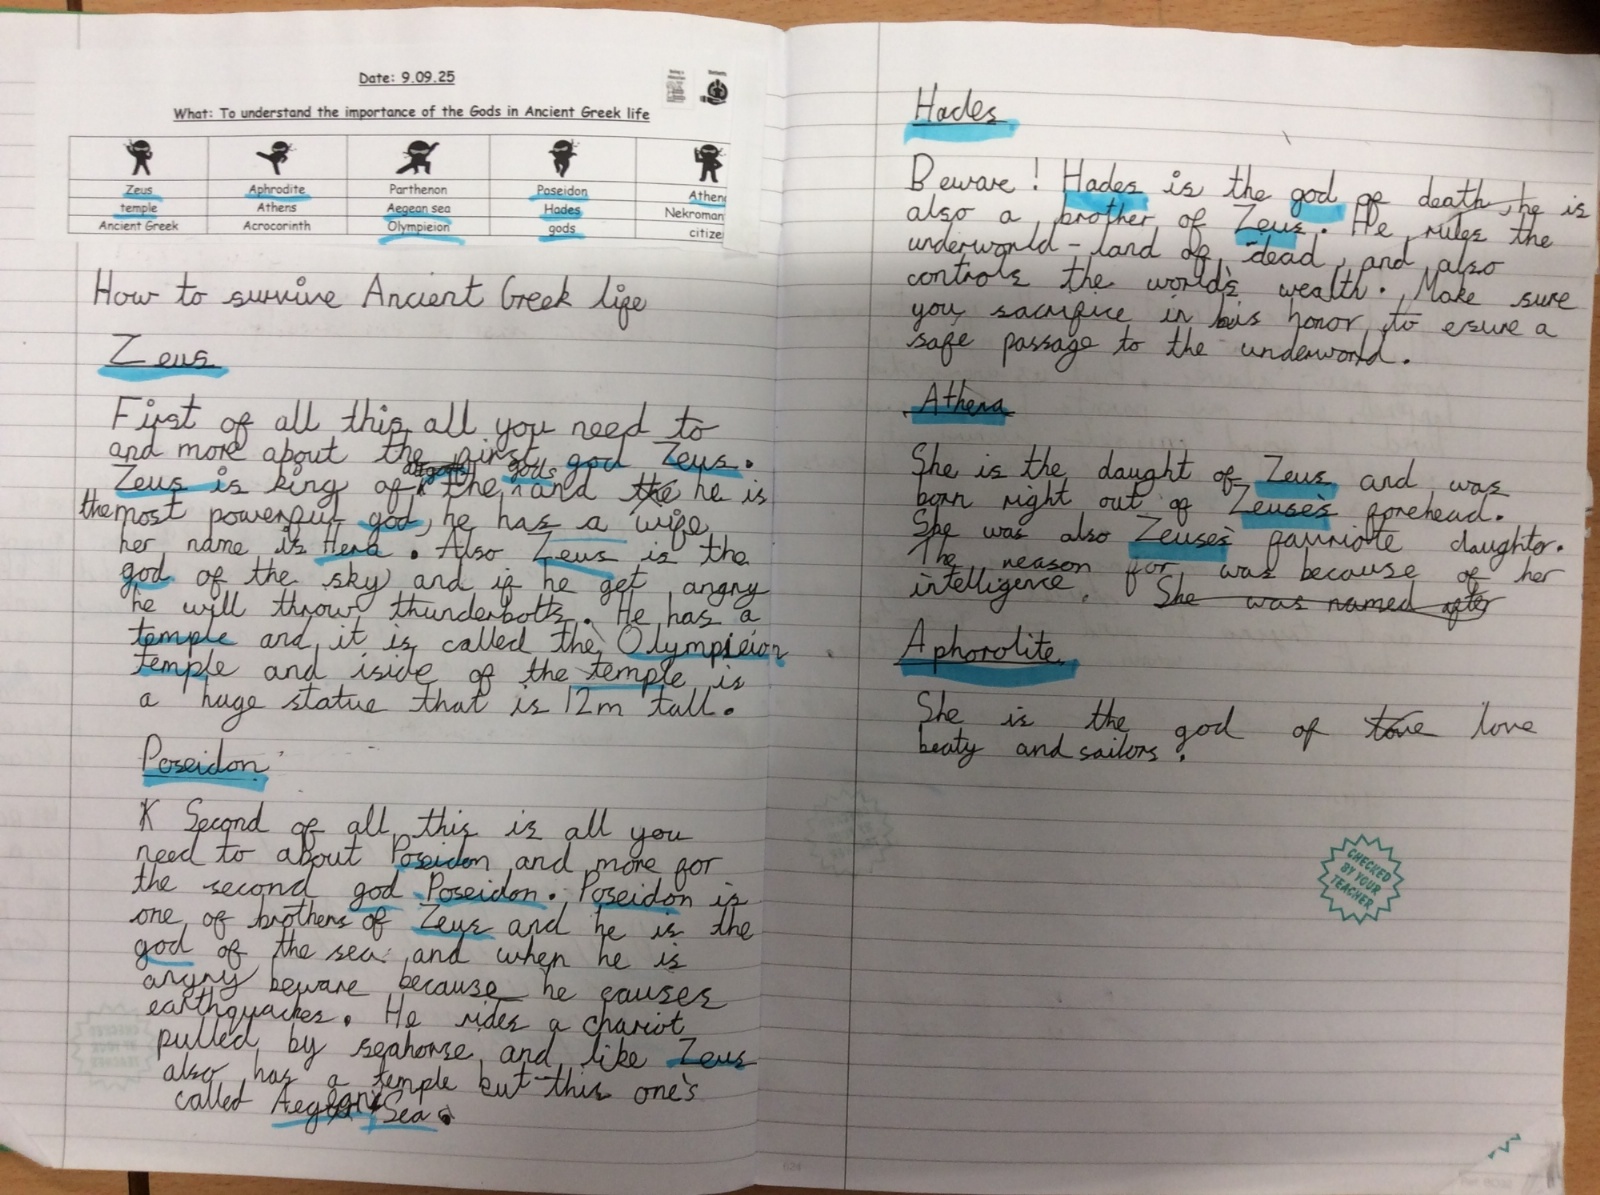 Date: 9.09.25
What: To understand the importance of the Gods in Ancient Greek life
Zeus Aphrodite Parthenon Poseidon Athen
temple Athens Aegean sea Hades Nekroman
Ancient Greek Acrocorinth Olympieion gods citize
How to survive Ancient Greek life
Zeus
First of all this all you need to
and more about the first god Zeus.
Zeus is king of the gods and he is
the most powerful god, he has a wife
her name is Hera. Also Zeus is the
god of the sky and if he get angry
he will throw thunderbolts. He has a
temple and it is called the Olympieion
temple and iside of the temple is
a huge statue that is 12m tall.
Poseidon
K Second of all this is all you
need to about Poseidon and more for
the second god Poseidon. Poseidon is
one of brothers of Zeus and he is the
god of the sea and when he is
angry beware because he causes
earthquackes. He rides a chariot
pulled by seahorse and like Zeus
also has a temple but this one's
called Sea.
Hades
Beware! Hades is the god of death, he is
also a brother of Zeus. He rules the
underworld - land of dead, and also
controls the world's wealth. Make sure
you sacrifice in his honor to esure a
safe passage to the underworld.
Athena
She is the daught of Zeus and was
born right out of Zeuse's forehead.
She was also Zeuse's daughter.
The reason for was because of her
intelligence. She was named after
Aphorolite
She is the god of love
beaty and sailors.
CHECKED
BY YOUR
TEACHER